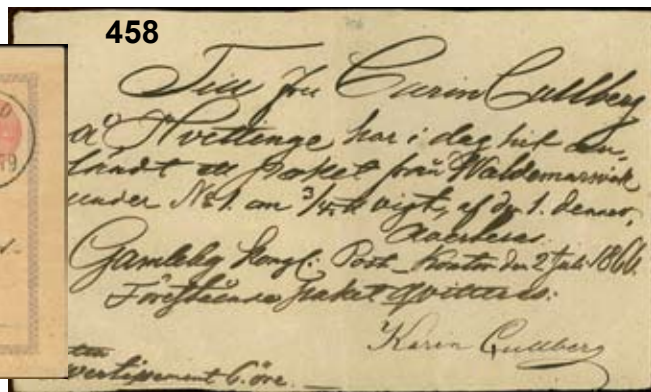 458
Till Fru Carin Cullberg
å Hvettinge har i dag hit an-
ländt ett Paket från Waldemarsvik
under No 1. om 3/4 ℔ vigt, af d. 1. dennes,
Averteras.
Gamleby Kongl: Post-Kontor den 2 Juli 1866.
Förestående paket qvitteras:
Karin Cullberg
vertissement 6 öre.